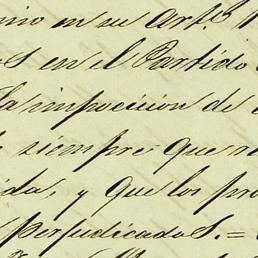 ino en su art.º
s en el Partido
la imposicion de
siempre que
ida, y que los pro
perjudicados. =